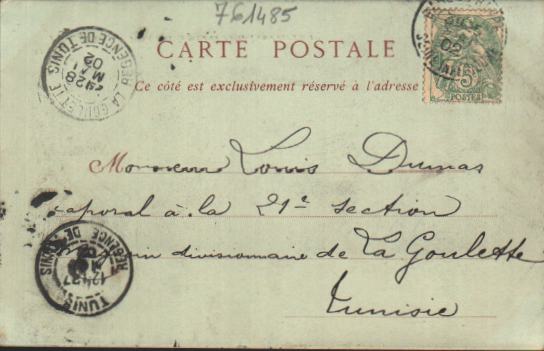 761485
CARTE POSTALE
Ce côté est exclusivement réservé à l'adresse
LA GOULETTE
RÉGENCE DE TUNIS
28
MAI
02
02
5
POSTES
Monsieur Louis Dumas
caporal à la 21e section
divisionnaire de La Goulette
Tunisie
TUNIS
RÉGENCE DE TUNIS